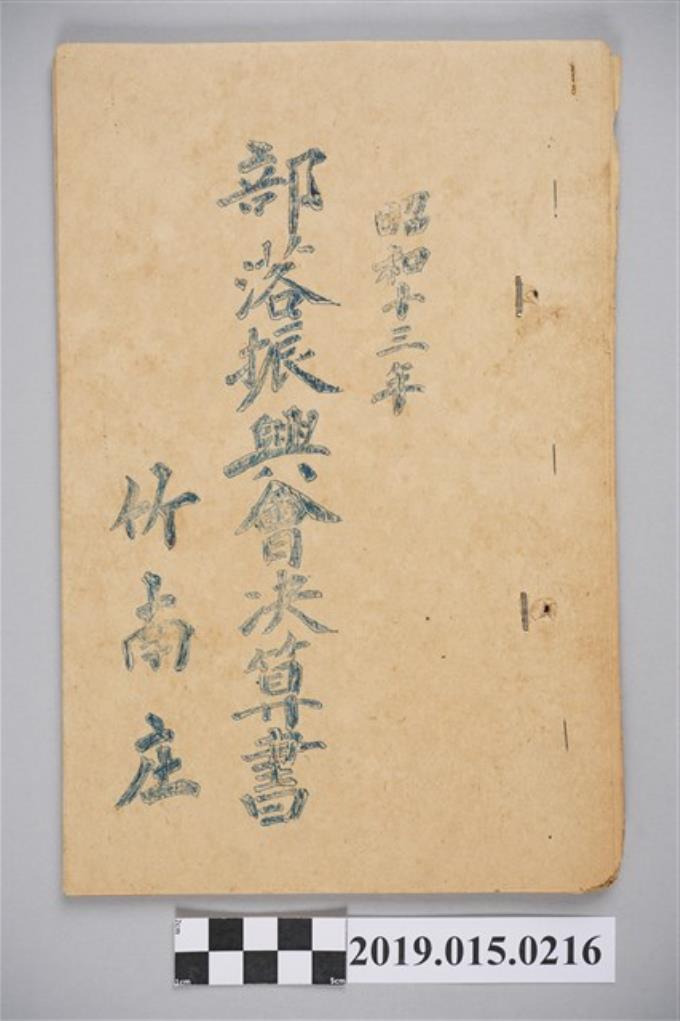 昭和十三年
部落振興會决算書
竹南庄
2019.015.0216
2cm
1cm
5cm